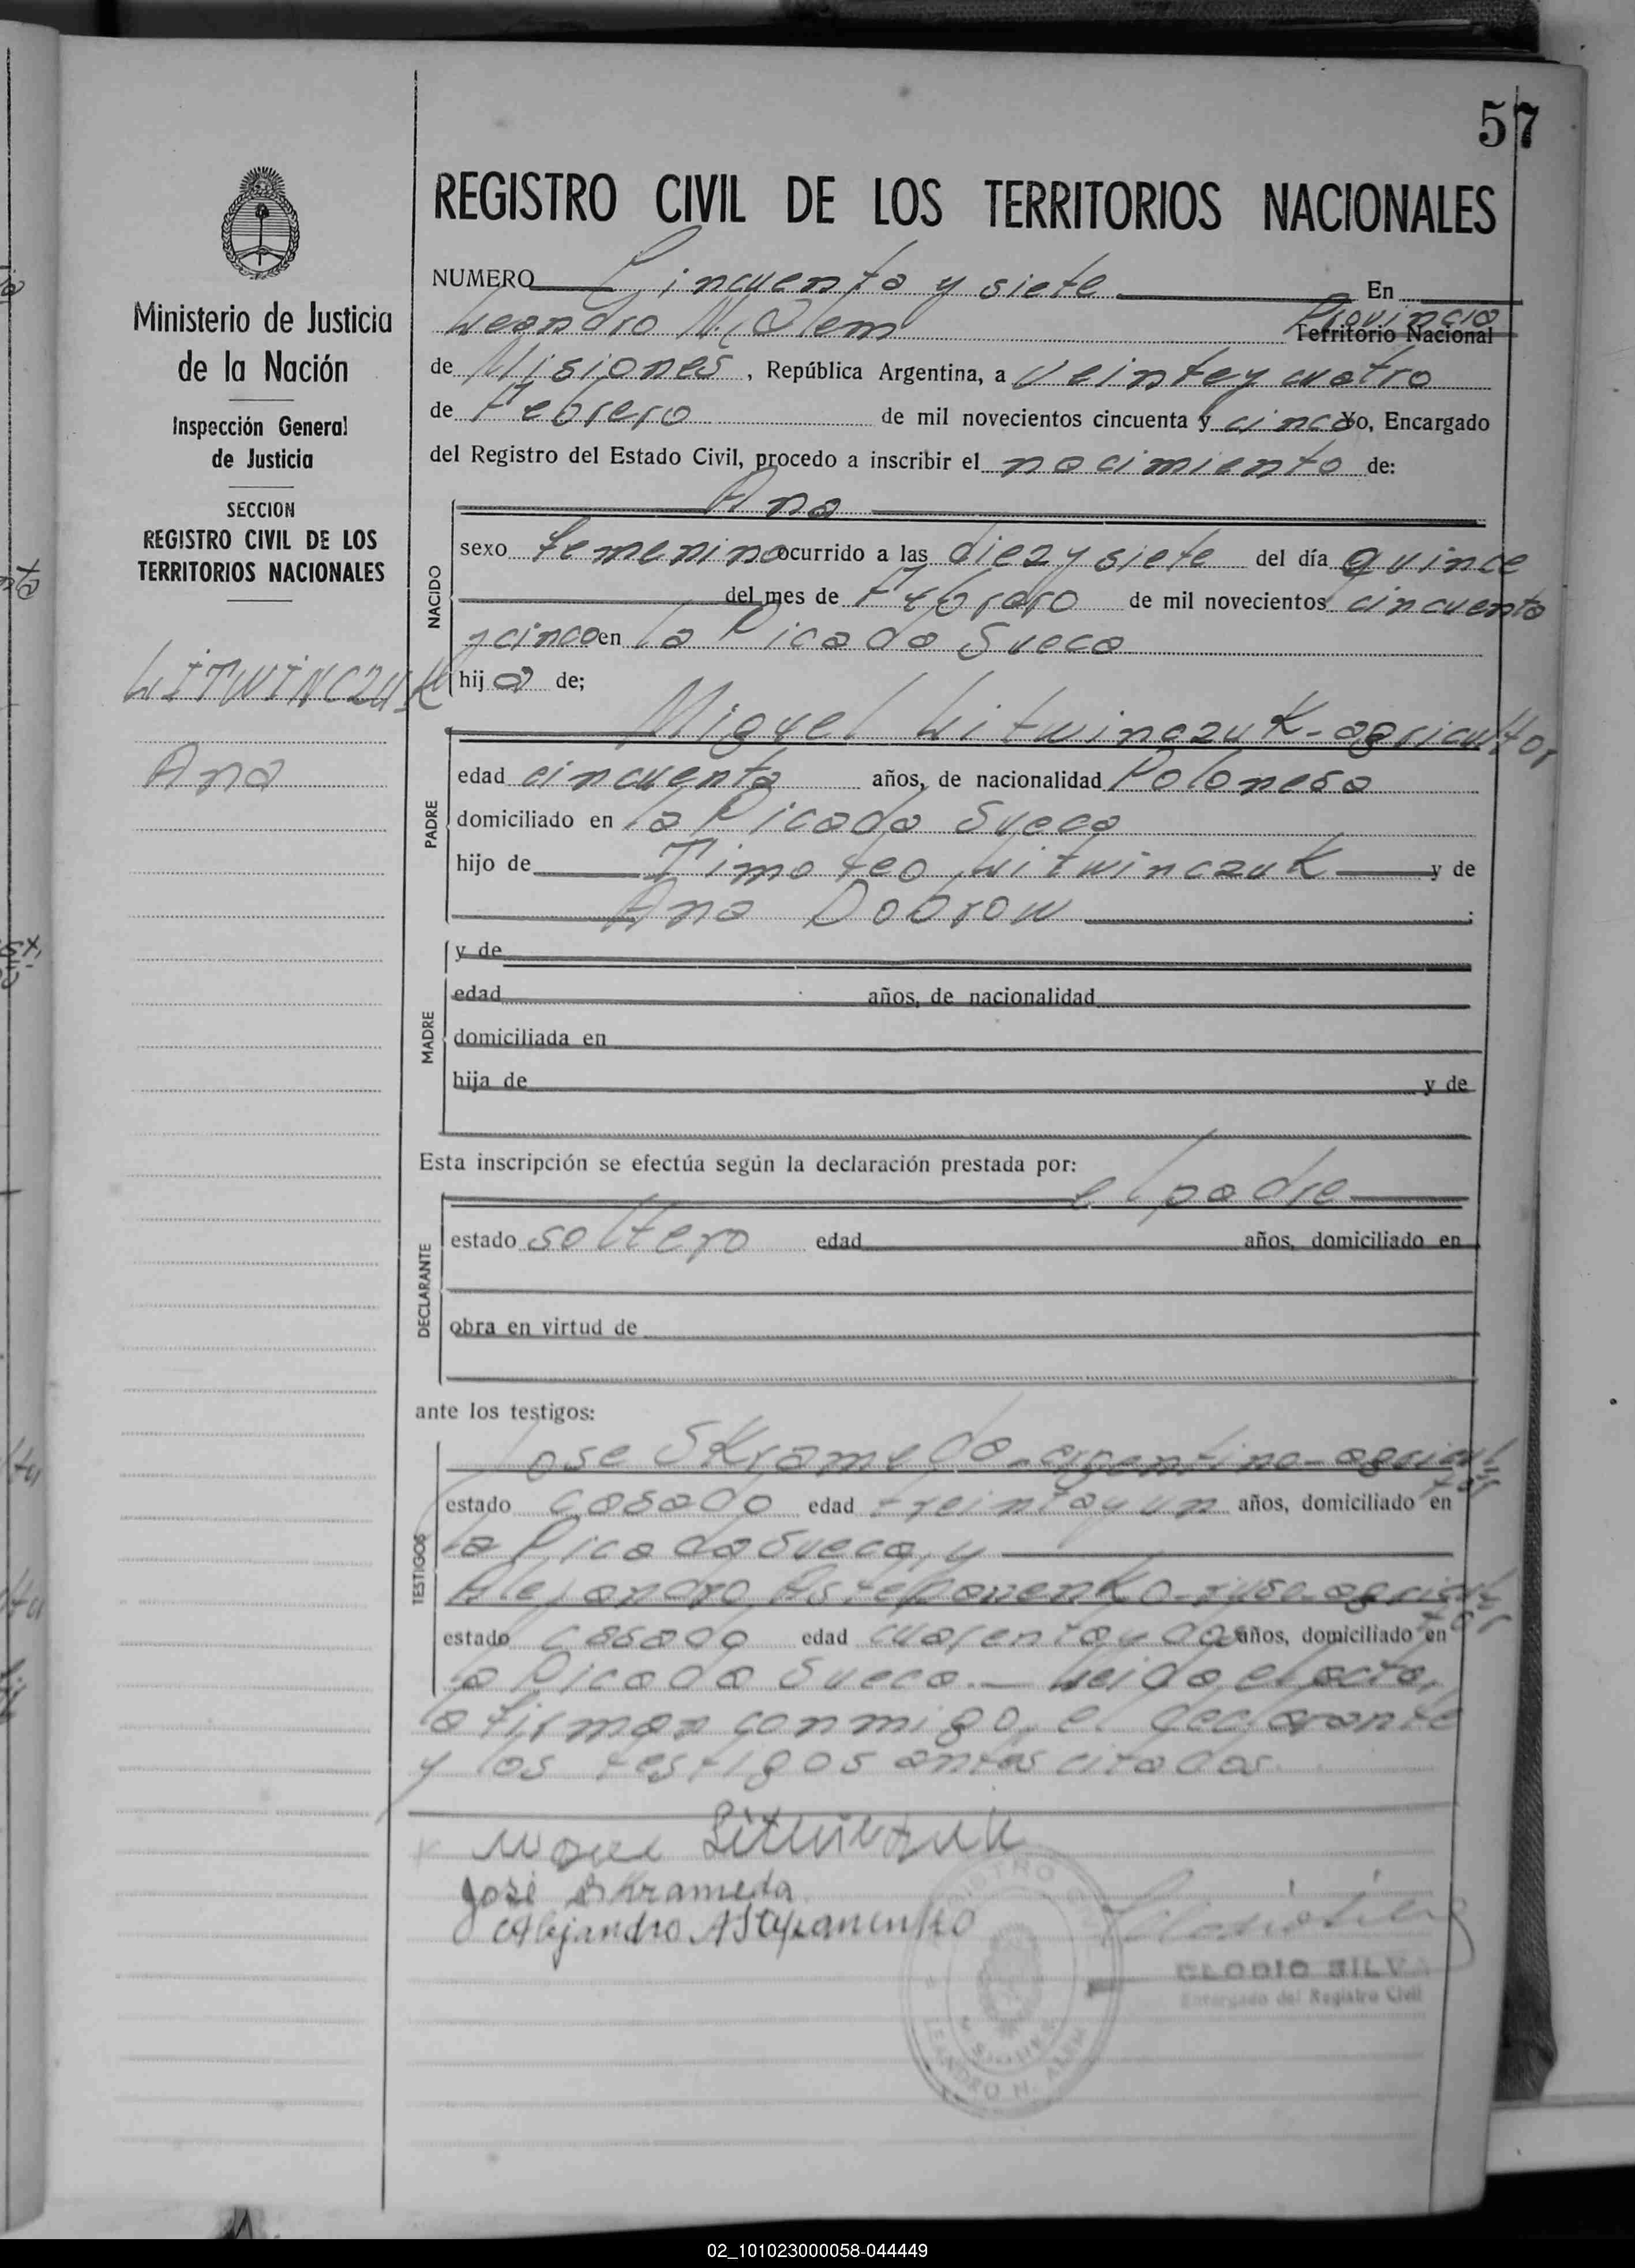 57
REGISTRO CIVIL DE LOS TERRITORIOS NACIONALES
Ministerio de Justicia
de la Nación
Inspección General
de Justicia
SECCION
REGISTRO CIVIL DE LOS
TERRITORIOS NACIONALES
LITWINCZUK
Ana
NUMERO Cincuenta y siete En
Leandro N. Alem Provincia Territorio Nacional
de Misiones, República Argentina, a veinte y cuatro
de Febrero de mil novecientos cincuenta y cinco Yo, Encargado
del Registro del Estado Civil, procedo a inscribir el nacimiento de:
Ana
NACIDO
sexo femenino ocurrido a las diez y siete del día quince
del mes de Febrero de mil novecientos cincuenta
y cinco en la Picada Sueca
hija de;
Miguel Litwinczuk - agricultor
PADRE
edad cincuenta años, de nacionalidad Polonesa
domiciliado en la Picada Sueca
hijo de Timoteo Litwinczuk y de
Ana Dobrow ;
MADRE
y de
edad años, de nacionalidad
domiciliada en
hija de y de
Esta inscripción se efectúa según la declaración prestada por:
el padre
DECLARANTE
estado soltero edad años, domiciliado en
obra en virtud de
ante los testigos:
TESTIGOS
Jose Skrameda - argentino - agricultor
estado casado edad treinta y un años, domiciliado en
la Picada Sueca, y
Alejandro Astepanenko - ruso - agricultor
estado casado edad cuarenta y dos años, domiciliado en
la Picada Sueca. - Leida el acta,
la firman conmigo, el declarante
y los testigos antes citados.
Litwinczuk
José Skrameda
Alejandro Astepanenko
REGISTRO
MISIONES
LEANDRO N. ALEM
CLODIO SILVA
Encargado del Registro Civil
02_101023000058-044449